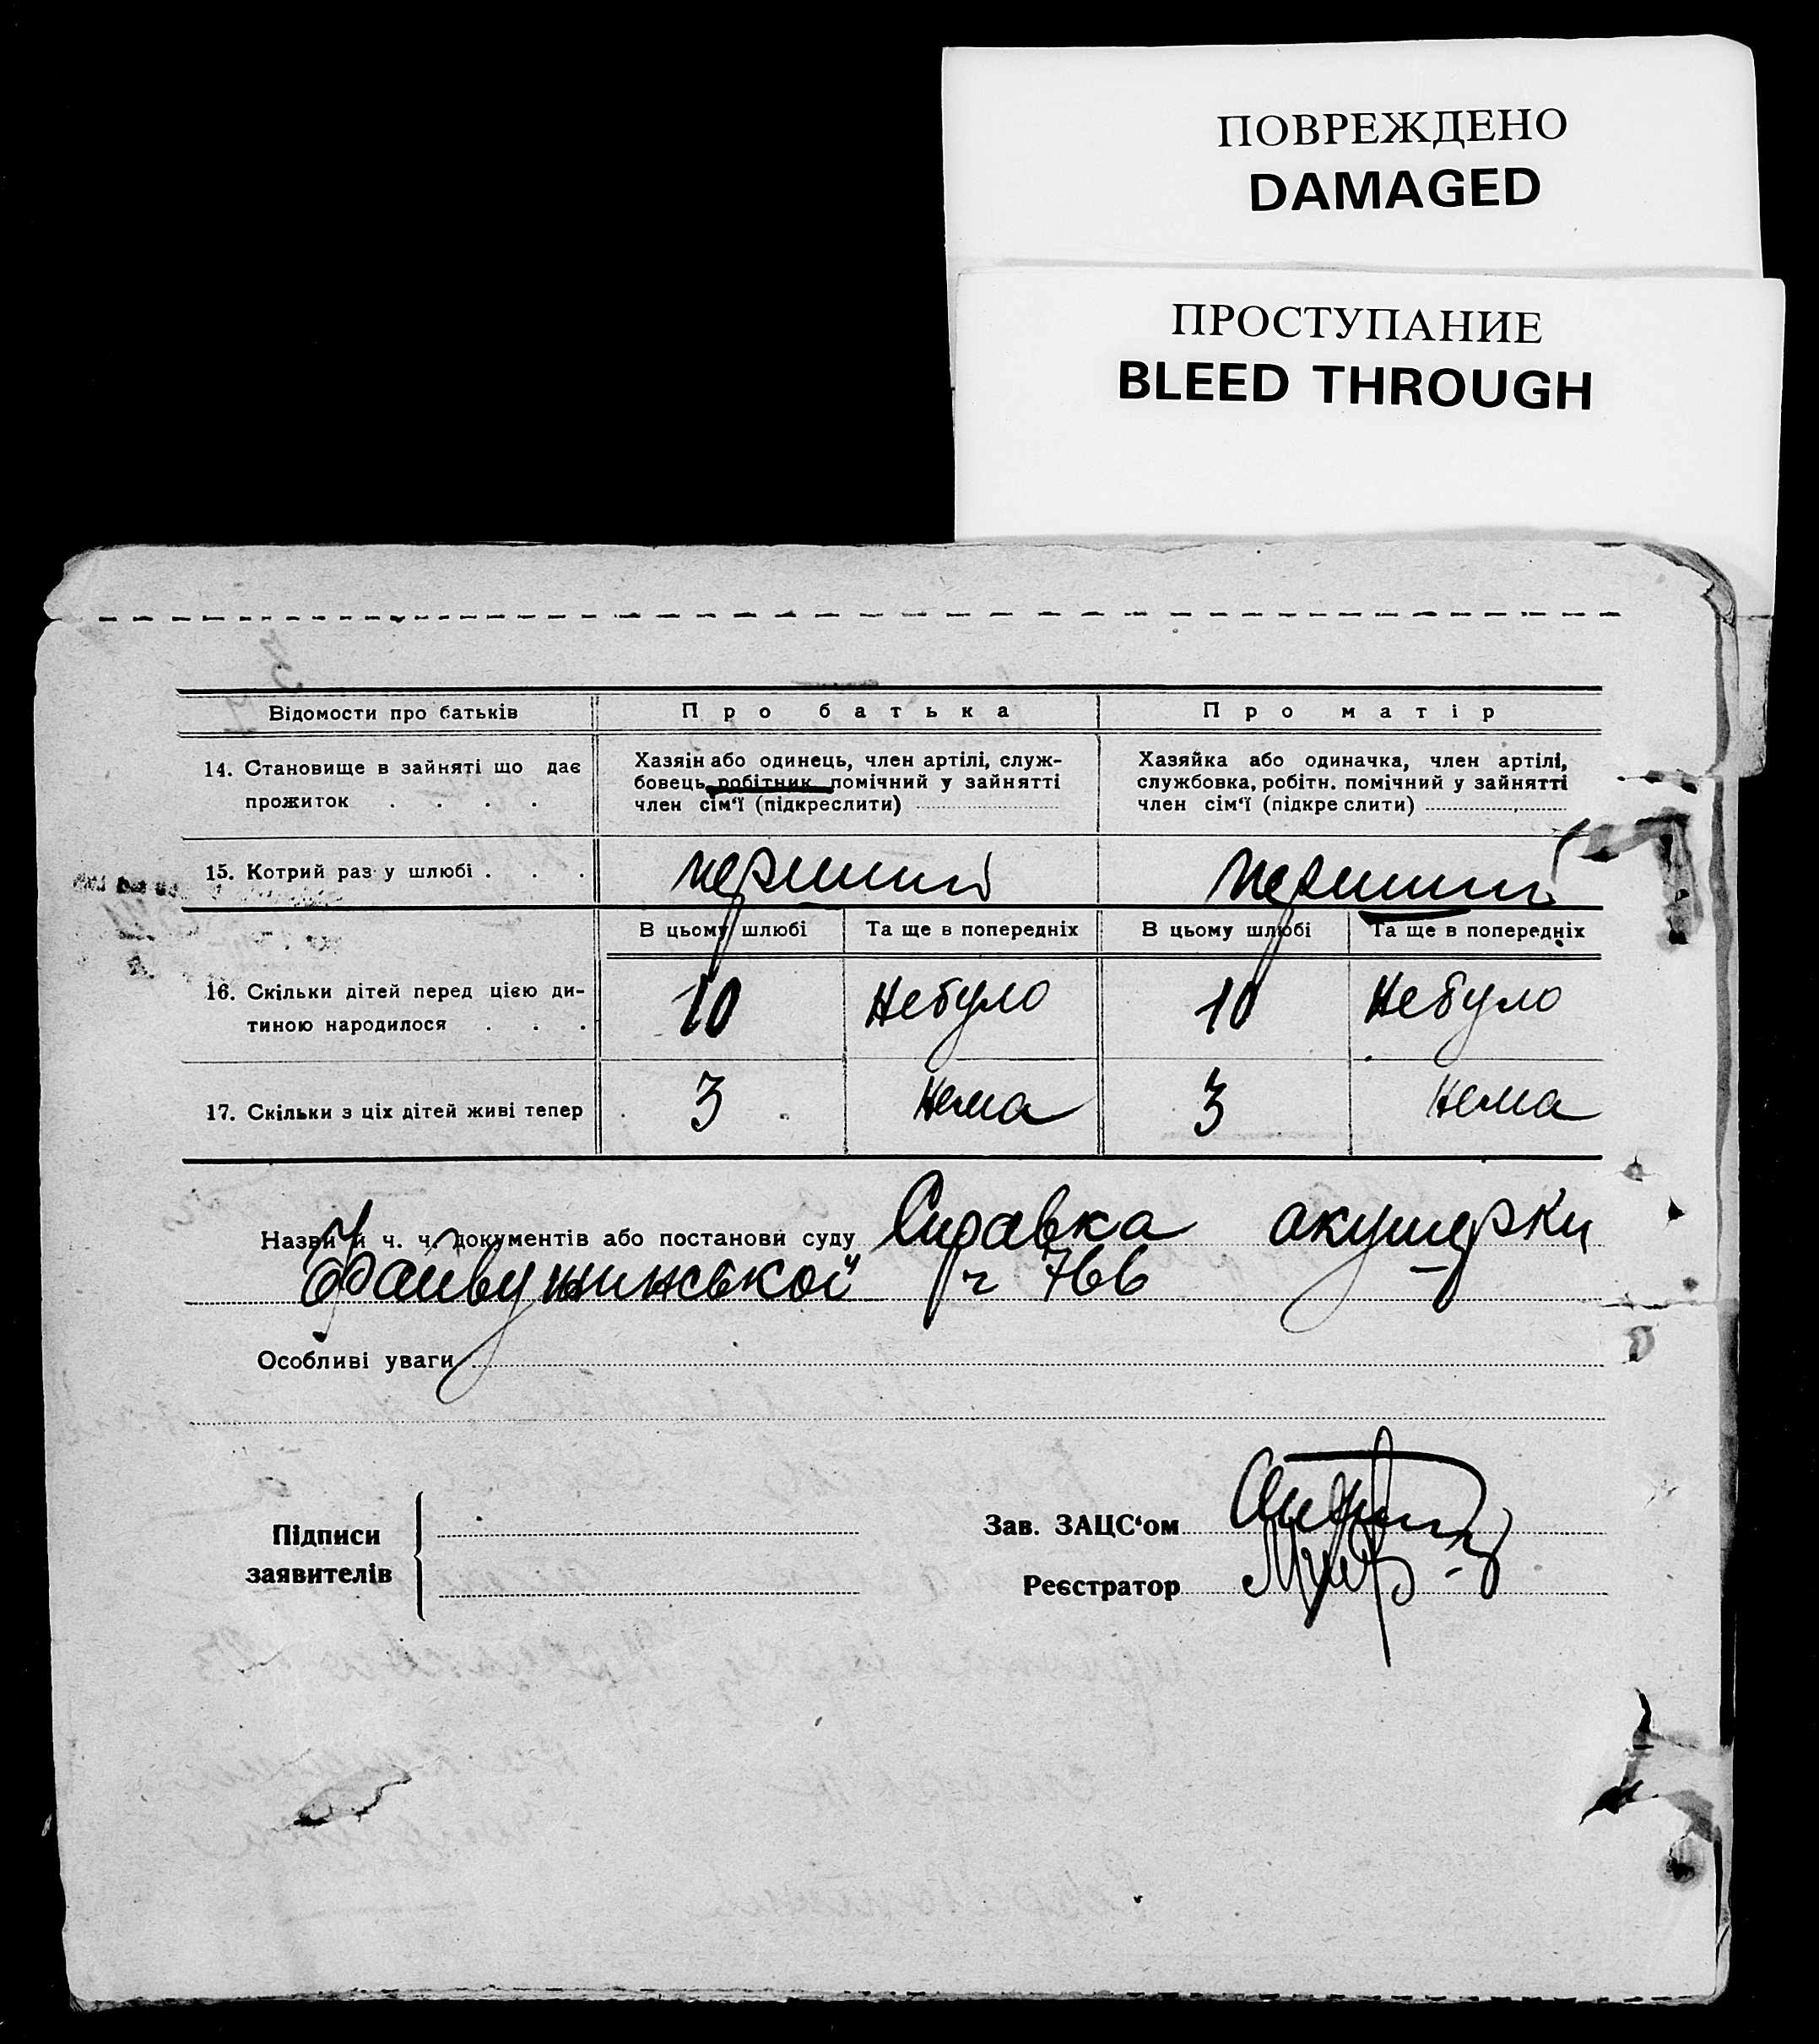 ПОВРЕЖДЕНО
DAMAGED
ПРОСТУПАНИЕ
BLEED THROUGH
Відомости про батьків
Про батька
Про матір
14. Становище в зайняті що дає
прожиток . . . .
Хазяін або одинець, член артілі, служ-
бовець, робітник помічний у зайнятті
член сім‘ї (підкреслити)
Хазяйка або одиначка, член артілі,
службовка, робітн. помічний у зайнятті
член сім‘ї (підкре слити)
15. Котрий раз у шлюбі . . .
перший
перший
В цьому шлюбі
Та ще в попередніх
В цьому шлюбі
Та ще в попередніх
16. Скільки дітей перед цією ди-
тиною народилося . . .
10
Небуло
10
Небуло
17. Скільки з ціх дітей живі тепер
3
нема
3
нема
Назви й ч. ч. документів або постанови суду Справка акушерки
ч 766
Особливі уваги
Підписи
заявителів
Зав. ЗАЦС‘ом
Реєстратор